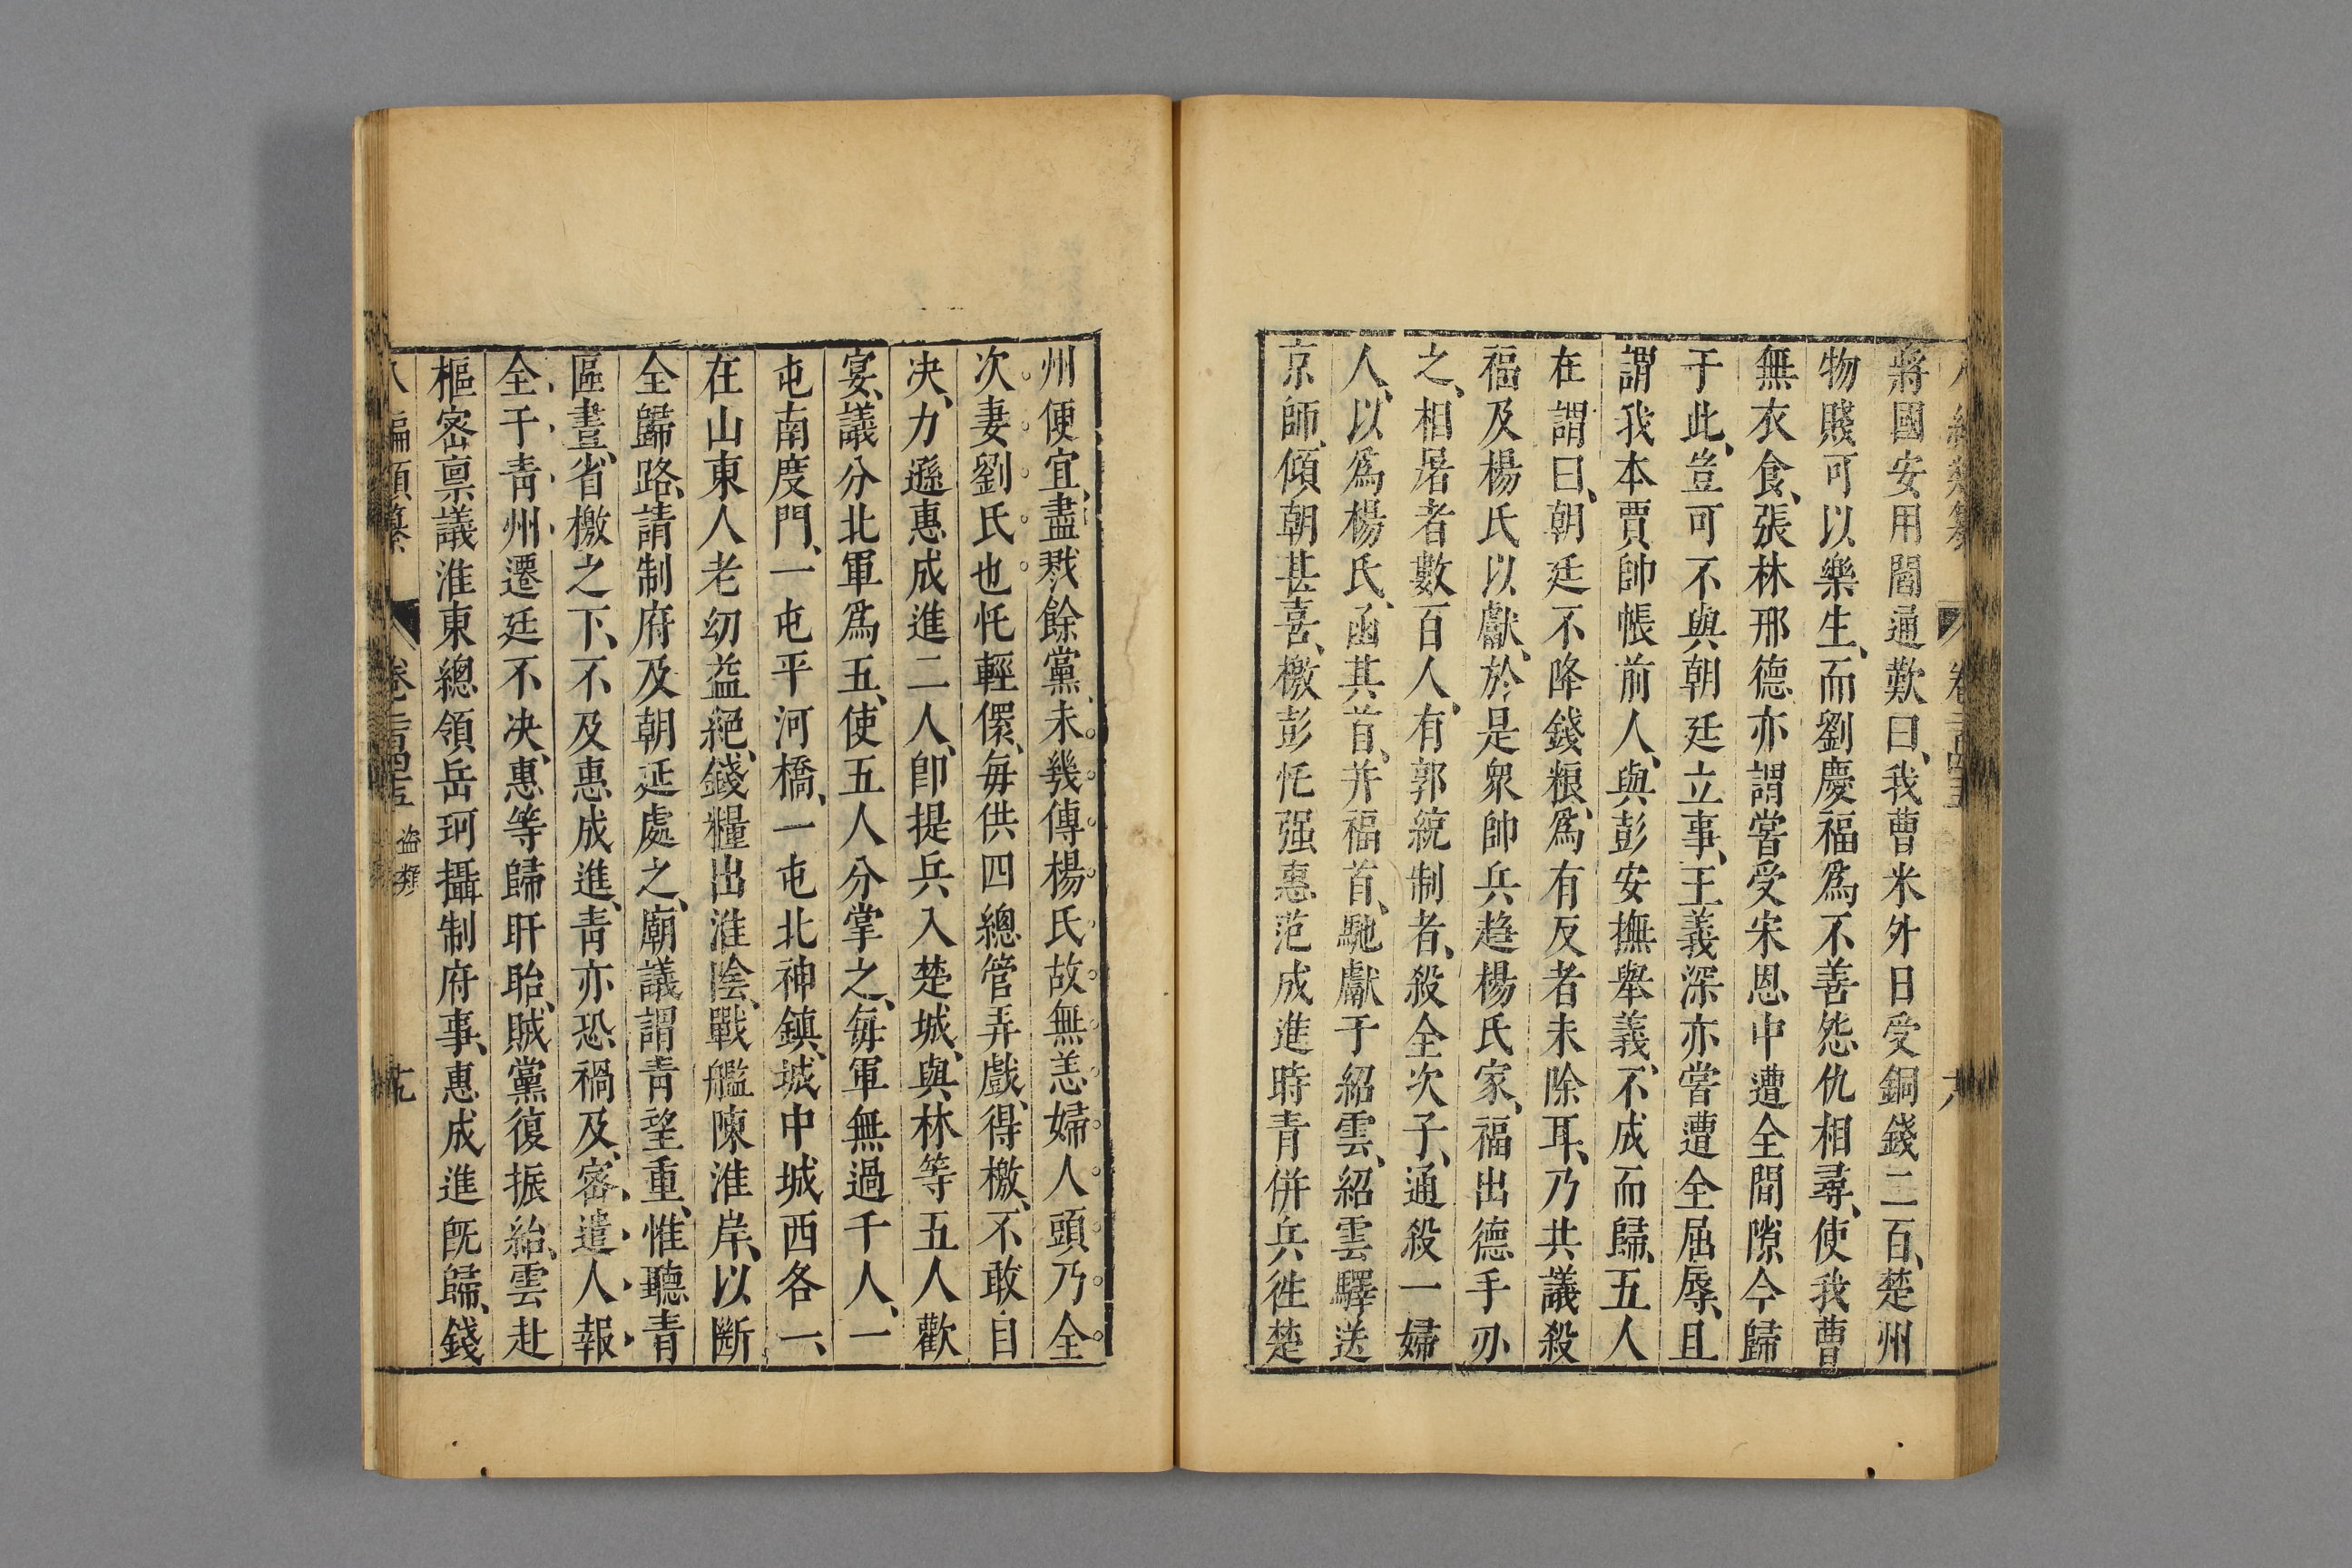 將國安用閻通歎曰、我曹米外日受銅錢二百、楚州
物賤可以樂生、而劉慶福爲不善怨仇相尋、使我曹
無衣食、張林邢德亦謂嘗受宋恩中遭全間隙今歸
于此、豈可不與朝廷立事、王義深亦嘗遭全屈辱、且
謂我本賈帥帳前人、與彭安撫舉義、不成而歸、五人
在謂曰、朝廷不降錢粮、爲有反者未除耳、乃共議殺
福及楊氏以獻、於是衆帥兵趍楊氏家、福出德手刃
之、相屠者數百人、有郭統制者、殺全次子、通殺一婦
人、以爲楊氏、函其首、并福首、馳獻于紹雲、紹雲驛送
京師、傾朝甚喜、檄彭忹强惠范成進時青併兵徃楚
州便宜、盡戮餘黨、未幾傳楊氏故無恙婦人頭乃全
次妻劉氏也忹輕儇、每供四總管弄戲、得檄、不敢自
决、力遜惠成進二人、卽提兵入楚城、與林等五人歡
宴、議分北軍爲五、使五人分掌之、每軍無過千人、一
屯南度門、一屯平河橋、一屯北神鎮、城中城西各一、
在山東人老幼益絕、錢糧出淮陰、戰艦陳淮岸、以斷
全歸路、請制府及朝廷處之、廟議謂青望重、惟聽青
區畫、省檄之下、不及惠成進、青亦恐禍及、密遣人報
全于青州遷延不决、惠等歸盱眙、賊黨復振紿、雲赴
樞密禀議淮東總領岳珂攝制府事、惠成進旣歸、錢
八編類纂 卷二百四五 盗類 十九